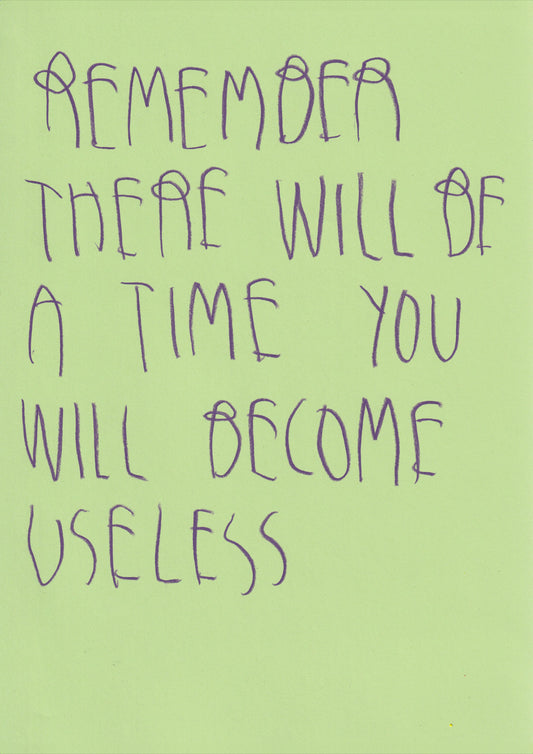 REMEMBER
THERE WILL BE
A TIME YOU
WILL BECOME
USELESS